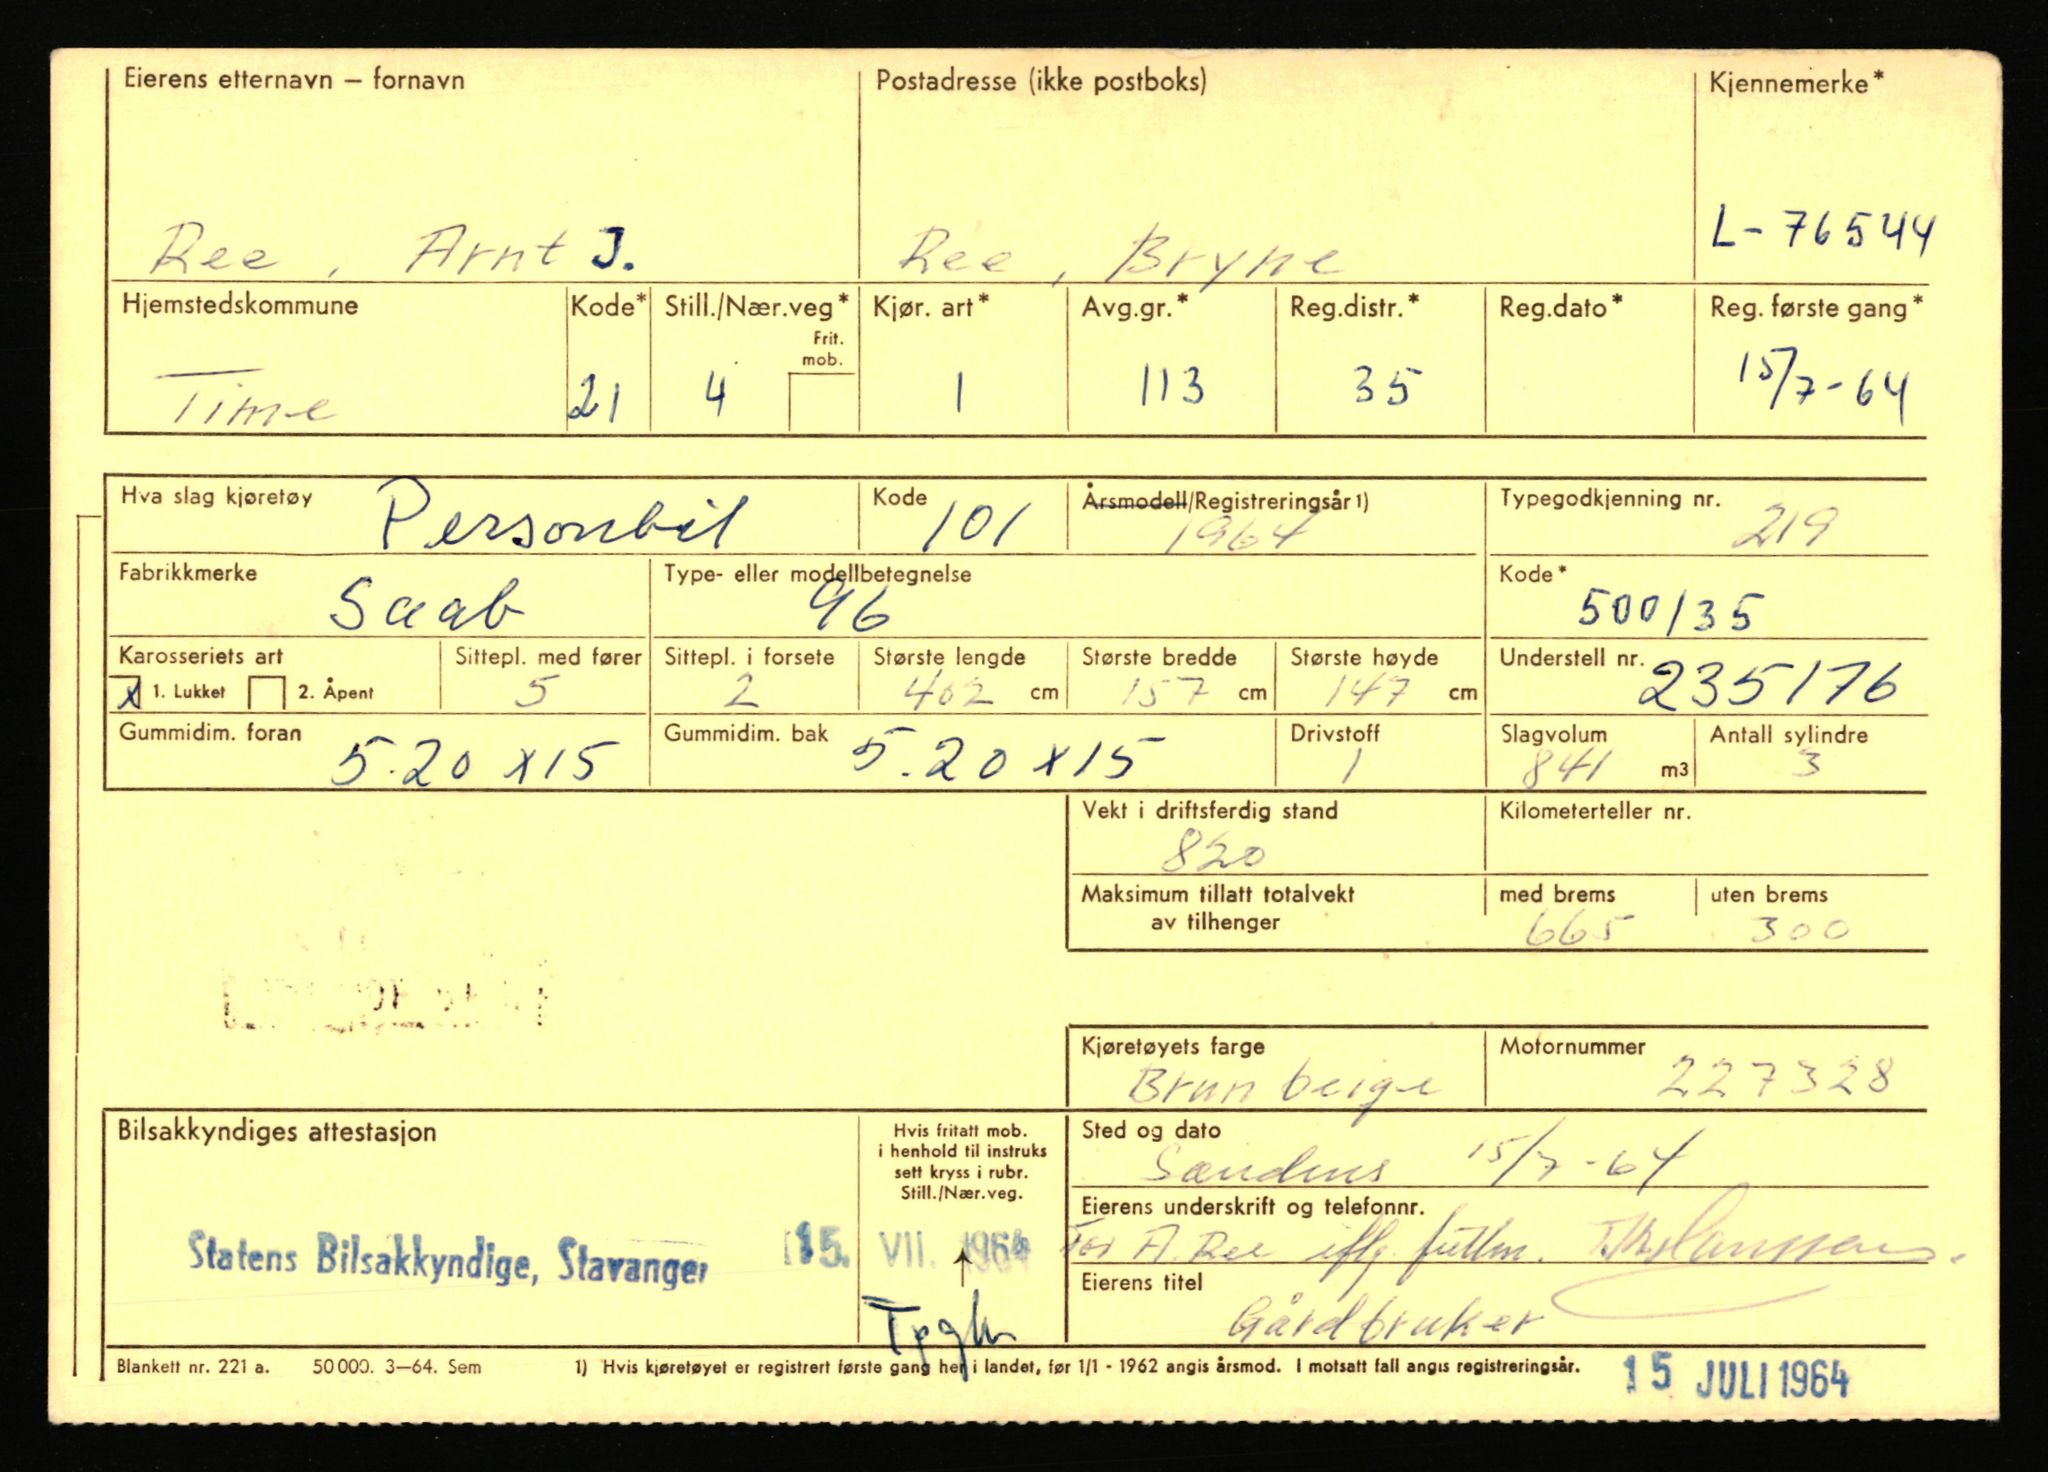 Eierens etternavn – fornavn Postadresse (ikke postboks) Kjennemerke*
Ree, Arnt J. Ree, Bryne L-76544
Hjemstedskommune Kode* Still./Nær.veg* Kjør. art* Avg.gr.* Reg.distr.* Reg.dato* Reg. første gang*
Frit.
mob.
Time 21 4 1 113 35 15/7-64
Hva slag kjøretøy Personbil Kode 101 Årsmodell/Registreringsår 1) Typegodkjenning nr.
1964 219
Fabrikkmerke Type- eller modellbetegnelse Kode*
Saab 96 500/35
Karosseriets art Sittepl. med fører Sittepl. i forsete Største lengde Største bredde Største høyde Understell nr.
x 1. Lukket 2. Åpent 5 2 402 cm 157 cm 147 cm 235176
Gummidim. foran Gummidim. bak Drivstoff Slagvolum Antall sylindre
5.20 x 15 5.20 x 15 1 841 m3 3
Vekt i driftsferdig stand Kilometerteller nr.
820
Maksimum tillatt totalvekt med brems uten brems
av tilhenger 665 300
Kjøretøyets farge Motornummer
Brun beige 227328
Bilsakkyndiges attestasjon Hvis fritatt mob. Sted og dato
i henhold til instruks
sett kryss i rubr.
Still./Nær.veg.
15/7-64
Eierens underskrift og telefonnr.
For A. Ree iflg. fullm.
Statens Bilsakkyndige, Stavanger 15. VII. 1964
Eierens titel
Gårdbruker
Blankett nr. 221 a. 50 000. 3–64. Sem 1) Hvis kjøretøyet er registrert første gang her i landet, før 1/1 - 1962 angis årsmod. I motsatt fall angis registreringsår.
15 JULI 1964